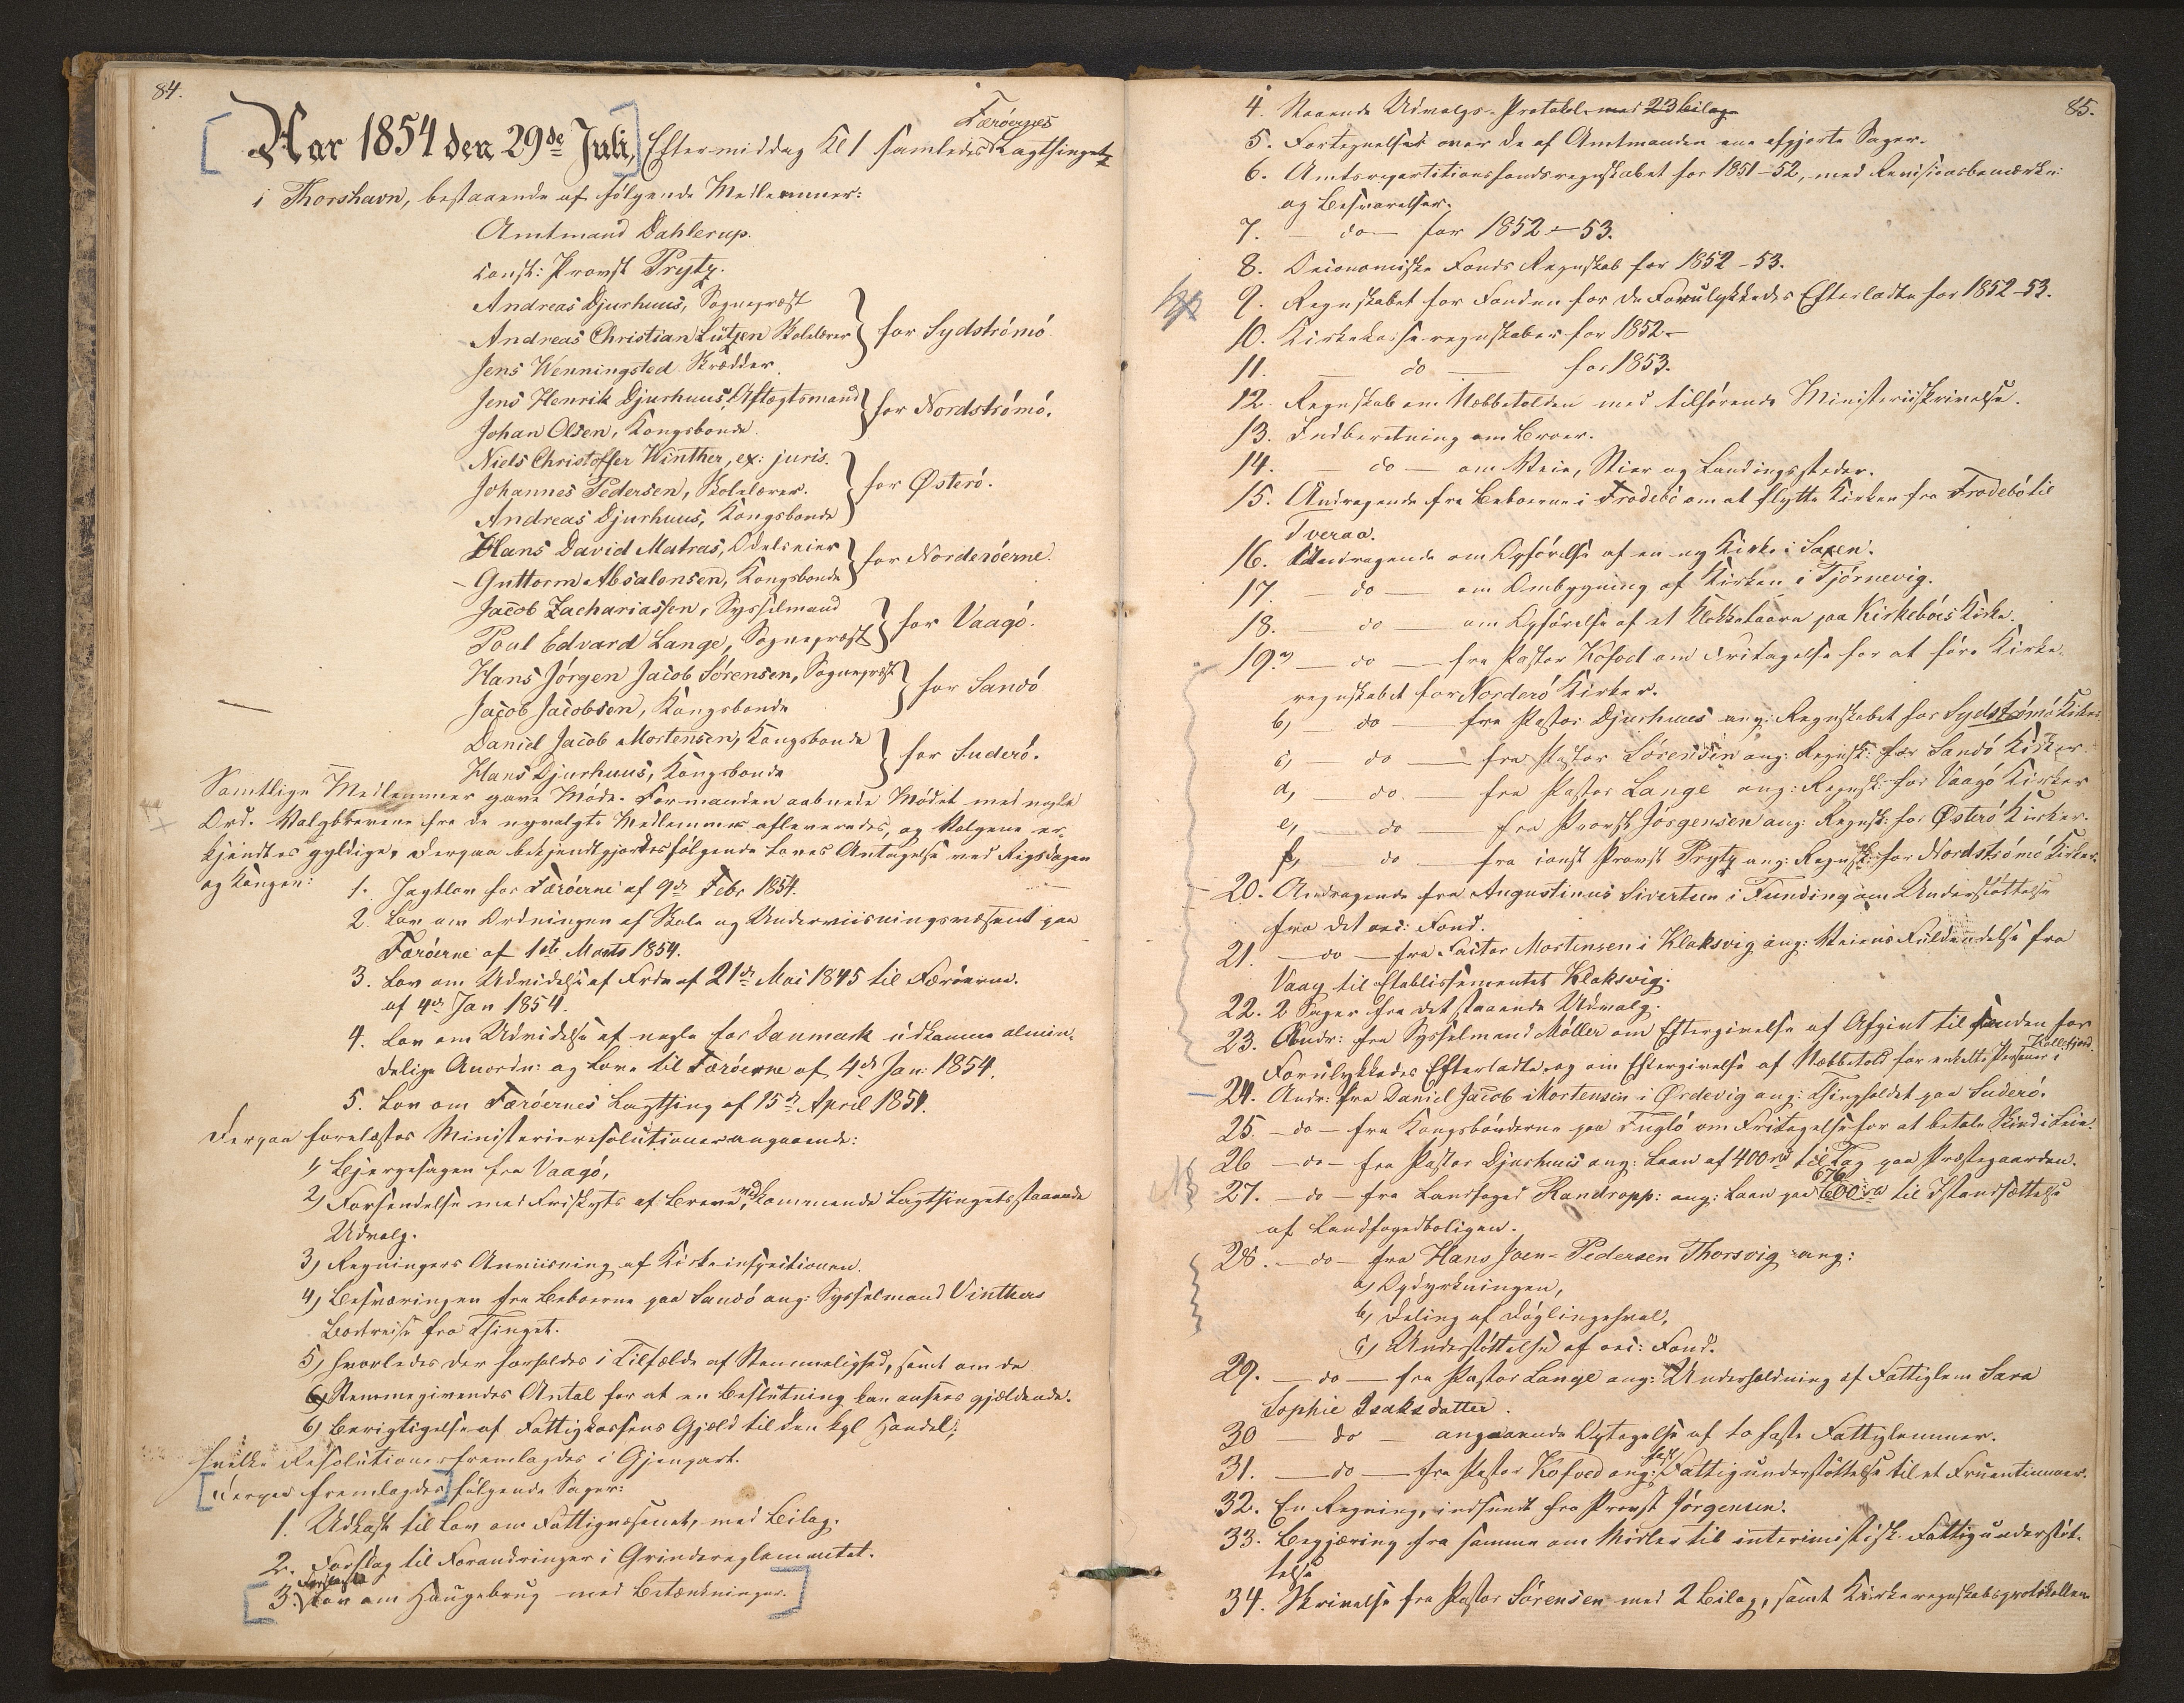 84.
Aar 1854 den 29de Juli, Eftermiddag Kl 1 samledes Færöernes Lagthinget
i Thorshavn, bestaaende af følgende Medlemmer:
Amtmand Dahlerup.
const: Provst Prytz.
Andreas Djurhuus, Sognepræst
Andreas Christian Lützen Skolelærer } for Sydströmö
Jens Wenningsted Skrædder.
Jens Henrik Djurhuus, Aftægtsmand } for Nordströmö.
Johan Olsen, Kongsbonde.
Niels Christoffer Winther, ex: juris.
Johannes Pedersen, Skolelærer. } for Österö.
Andreas Djurhuus, Kongsbonde
Hans David Matras, Odelseier } for Norderöerne.
Guttorm Absalonsen, Kongsbonde
Jacob Zachariassen, Sysselmand } for Vaagö.
Poul Edvard Lange, Sognepræst
Hans Jörgen Jacob Sörensen, Sognepræst } for Sandö
Jacob Jacobsen, Kongsbonde
Daniel Jacob Mortensen, Kongsbonde } for Suderö.
Hans Djurhuus, Kongsbonde
Samtlige Medlemmer gave Möde. Formanden aabnede Mödet med nogle
Ord. Valgbrevene fra de nyvalgte Medlemmer afleveredes, og Valgene er-
kjendtes gyldige, derpaa bekjendtgjordes fölgende Loves Antagelse ved Rigsdagen
og Kongen:
1. Jagtlov for Færöerne af 9de Febr 1854.
2. Lov om Ordningen af Skole og Underviisningsvæsenet paa
Færöerne af 1ste Marts 1854.
3. Lov om Udvidelse af Frdn af 21de Mai 1845 til Færöerne.
af 4de Jan 1854.
4. Lov om Udvidelse af nogle for Danmark udkomne almin-
delige Anordn: og Love til Færöerne af 4de Jan: 1854.
5. Lov om Færöernes Lagthing af 15de April 1854.
Derpaa forelæstes Ministerieresolutioner angaaende:
1) Bjergesagen fra Vaagö,
2) Forsendelse med Friskyds af Breve vedkommende Lagthingets staaende
Udvalg.
3) Regningers Anviisning af Kirkeinspectionen.
4) Besværingen fra Beboerne paa Sandö ang: Sysselmand Vinthers
Bortreise fra Thinget.
5) Hvorledes der forholdes i Tilfælde af Stemmelighed, samt om de
Stemmegivendes Antal for at en Beslutning kan ansees gjældende.
6) Berigtigelse af Fattigkassens Gjæld til den kgl Handel;
hvilke Resolutioner fremlagdes i Gjenpart.
Derpaa fremlagdes fölgende Sager:
1. Udkast til Lov om Fattigvæsenet, med Bilag.
2. Forslag til Forandringer i Grindereglementet.
3. Forslag til Lov om Haugebrug med Betænkninger.
85.
4. Staaende Udvalgs-Protokol med 23 Bilag
5. Fortegnelser over de af Amtmanden ene afgjorte Sager.
6. Amtsrepartitionsfondsregnskabet for 1851-52, med Revisionsbemærkn:
og Besvarelser.
7. — do — for 1852-53.
8. Oeconomiske Fonds Regnskab for 1852-53.
9. Regnskabet for Fonden for de Forulykkedes Efterladte for 1852-53.
10. Kirkekasseregnskaber for 1852.
11. — do — for 1853.
12. Regnskab om Næbbetolden med tilhörende Ministeriskrivelse.
13. Indberetning om Broer.
14. — do — om Veie, Stier og Landingssteder.
15. Andragende fra Beboerne i Frodebö om at flytte Kirken fra Frodebö til
Tveraa.
16. Andragende om Opförelse af en ny Kirke i Saxen.
17. — do — om Ombygning af Kirken i Tjörnevig.
18. — do — om Opförelse af et Klokketaarn paa Kirkeböes Kirke.
19. a) — do — fra Pastor Kofoed om Fritagelse for at före Kirke-
regnskabet for Norderö Kirker.
b) — do — fra Pastor Djurhuus ang: Regnskabet for Sydströmö Kirker
c) — do — fra Pastor Sörensen ang: Regnsk: for Sandö Kirker
d) — do — fra Pastor Lange ang: Regnsk: for Vaagö Kirker
e) — do — fra Provst Jörgensen ang: Regnsk: for Österö Kirker.
f) do — fra const Provst Prytz ang: Regnsk: for Nordströmö Kirker.
20. Andragende fra Augustinus Sivertsen i Funding om Understöttelse
fra det oec: Fond.
21. — do — fra Factor Mortensen i Klaksvig ang: Veiens Fuldendelse fra
Vaag til Etablissementet Klaksvig.
22. 2 Sager fra det staaende Udvalg.
23. Andr: fra Sysselmand Möller om Eftergivelse af Afgivt til Fonden for
Forulykkedes Efterladte, og om Eftergivelse af Næbbetold for enkelte Personer i Kollefjord.
24. Andr: fra Daniel Jacob Mortensen i Ördevig ang: Thingholdet paa Suderö.
25. — do — fra Kongsbönderne paa Fuglö om Fritagelse for at betale Skind i Leie.
26 — do — fra Pastor Djurhuus ang: Laan af 400 rd til Tag paa Præstegaarden.
27. — do — fra Landfoged Randropp: ang: Laan paa 600 rd 676 til Istandsættelse
af Landfogedboligen.
28. — do — fra Hans Joen-Pedersen Thorsvig ang:
a) Opdyrkningen,
b) Deling af Döglingehval,
c) Understöttelse af oec: Fond.
29. — do — fra Pastor Lange ang: Underholdning af Fattiglem Sara
Sophie Isaksdatter.
30 — do — angaaende Optagelse af to faste Fattiglemmer.
31. — do — fra Pastor Kofoed ang: fast Fattigunderstöttelse til et Fruentimmer.
32. En Regning, indsendt fra Provst Jörgensen.
33. Begjæring fra samme om Midler til interimistisk Fattigunderstöt-
telse
34. Skrivelse fra Pastor Sörensen med 2 Bilag, samt Kirkeregnskabsprotokollen